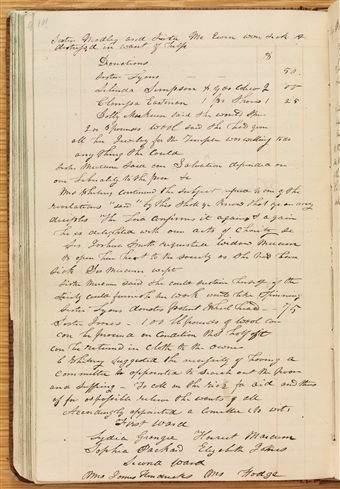 Sister Medley and Sister Mc Ewen were sick &
destitute in want of help
$
Donations
Sister Lyons 50,
Lelinda Simpson 2 00
Clempsa Eastman 1 pr Shoes 1 25
Polly Meekum said she would Spin
20 pounds wool said she had given
all her Jewelry for the Temple was willing to do
any thing She Could
Sister Mecum Said our Salvation depended on
our liberality to the poor &c
Mrs Whitney continued the subject spoke of one of the
revelations "viz" by this shall ye know that ye are my
disciples The Lord confirms it again & again
he is delighted with our acts of Charity &c
Sis Joseph Smith requested widow Mecum
to open her heart to the society as she had been
sick Sis Mecum wept
Sister Mecum said she could sustain herself if the
Society could furnish her work such like Spinning
Sister Lyons donates 75
Sister Jones 100 lb pounds of wool can
can be procured on Condition that half of it
can be returned in Cloth to the owner
C Whitney suggested the necessity of having a
Committee appointed to search out the poor
and suffering - To call on the rich for aid and thus
as far as possible relieve the wants of all
Accordingly appointed a Comittee to wit
First Ward
Lydia Granger Harriet Mascum
Sophia Packard Elizabeth Jones
Second Ward
Mrs James Hendricks Mrs Hodge